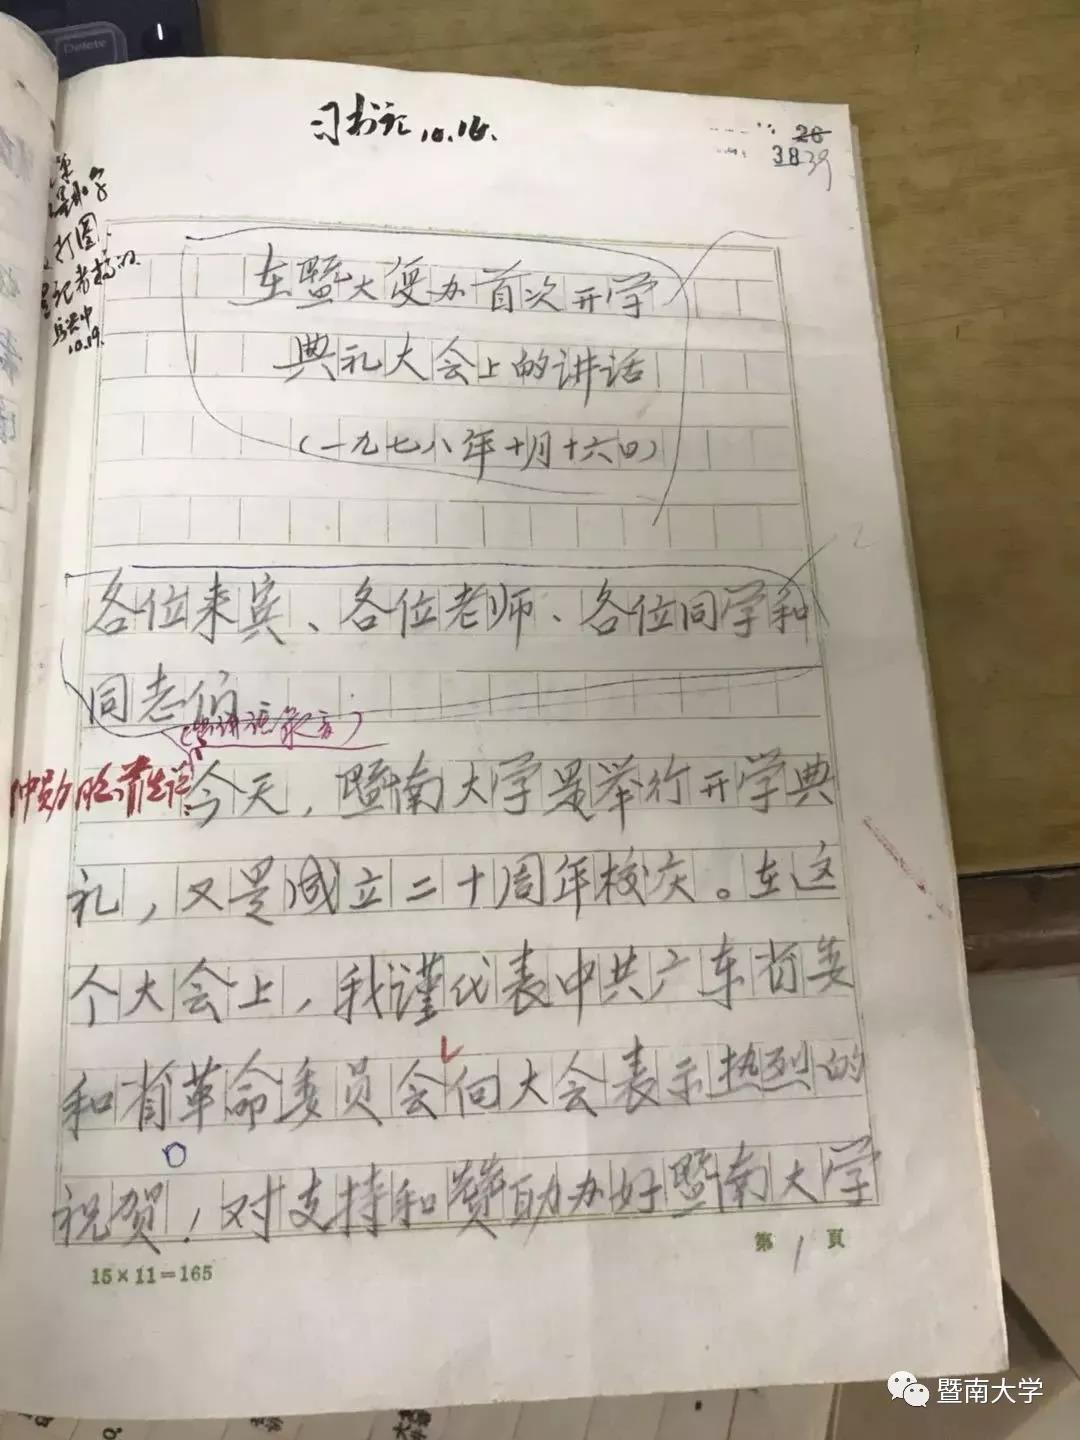 Delete
习书记 10.16.
28
38 39
10.19.
在暨大复办首次开学
典礼大会上的讲话
(一九七八年十月十六日)
2
各位来宾、各位老师、各位同学和
同志们
(讲话录音)
仲勋
今天,暨南大学是举行开学典
礼,又是成立二十周年校庆。在这
个大会上,我谨代表中共广东省委
和省革命委员会向大会表示热烈的
祝贺,对支持和赞助办好暨南大学
第 1 頁
15×11=165
暨南大学